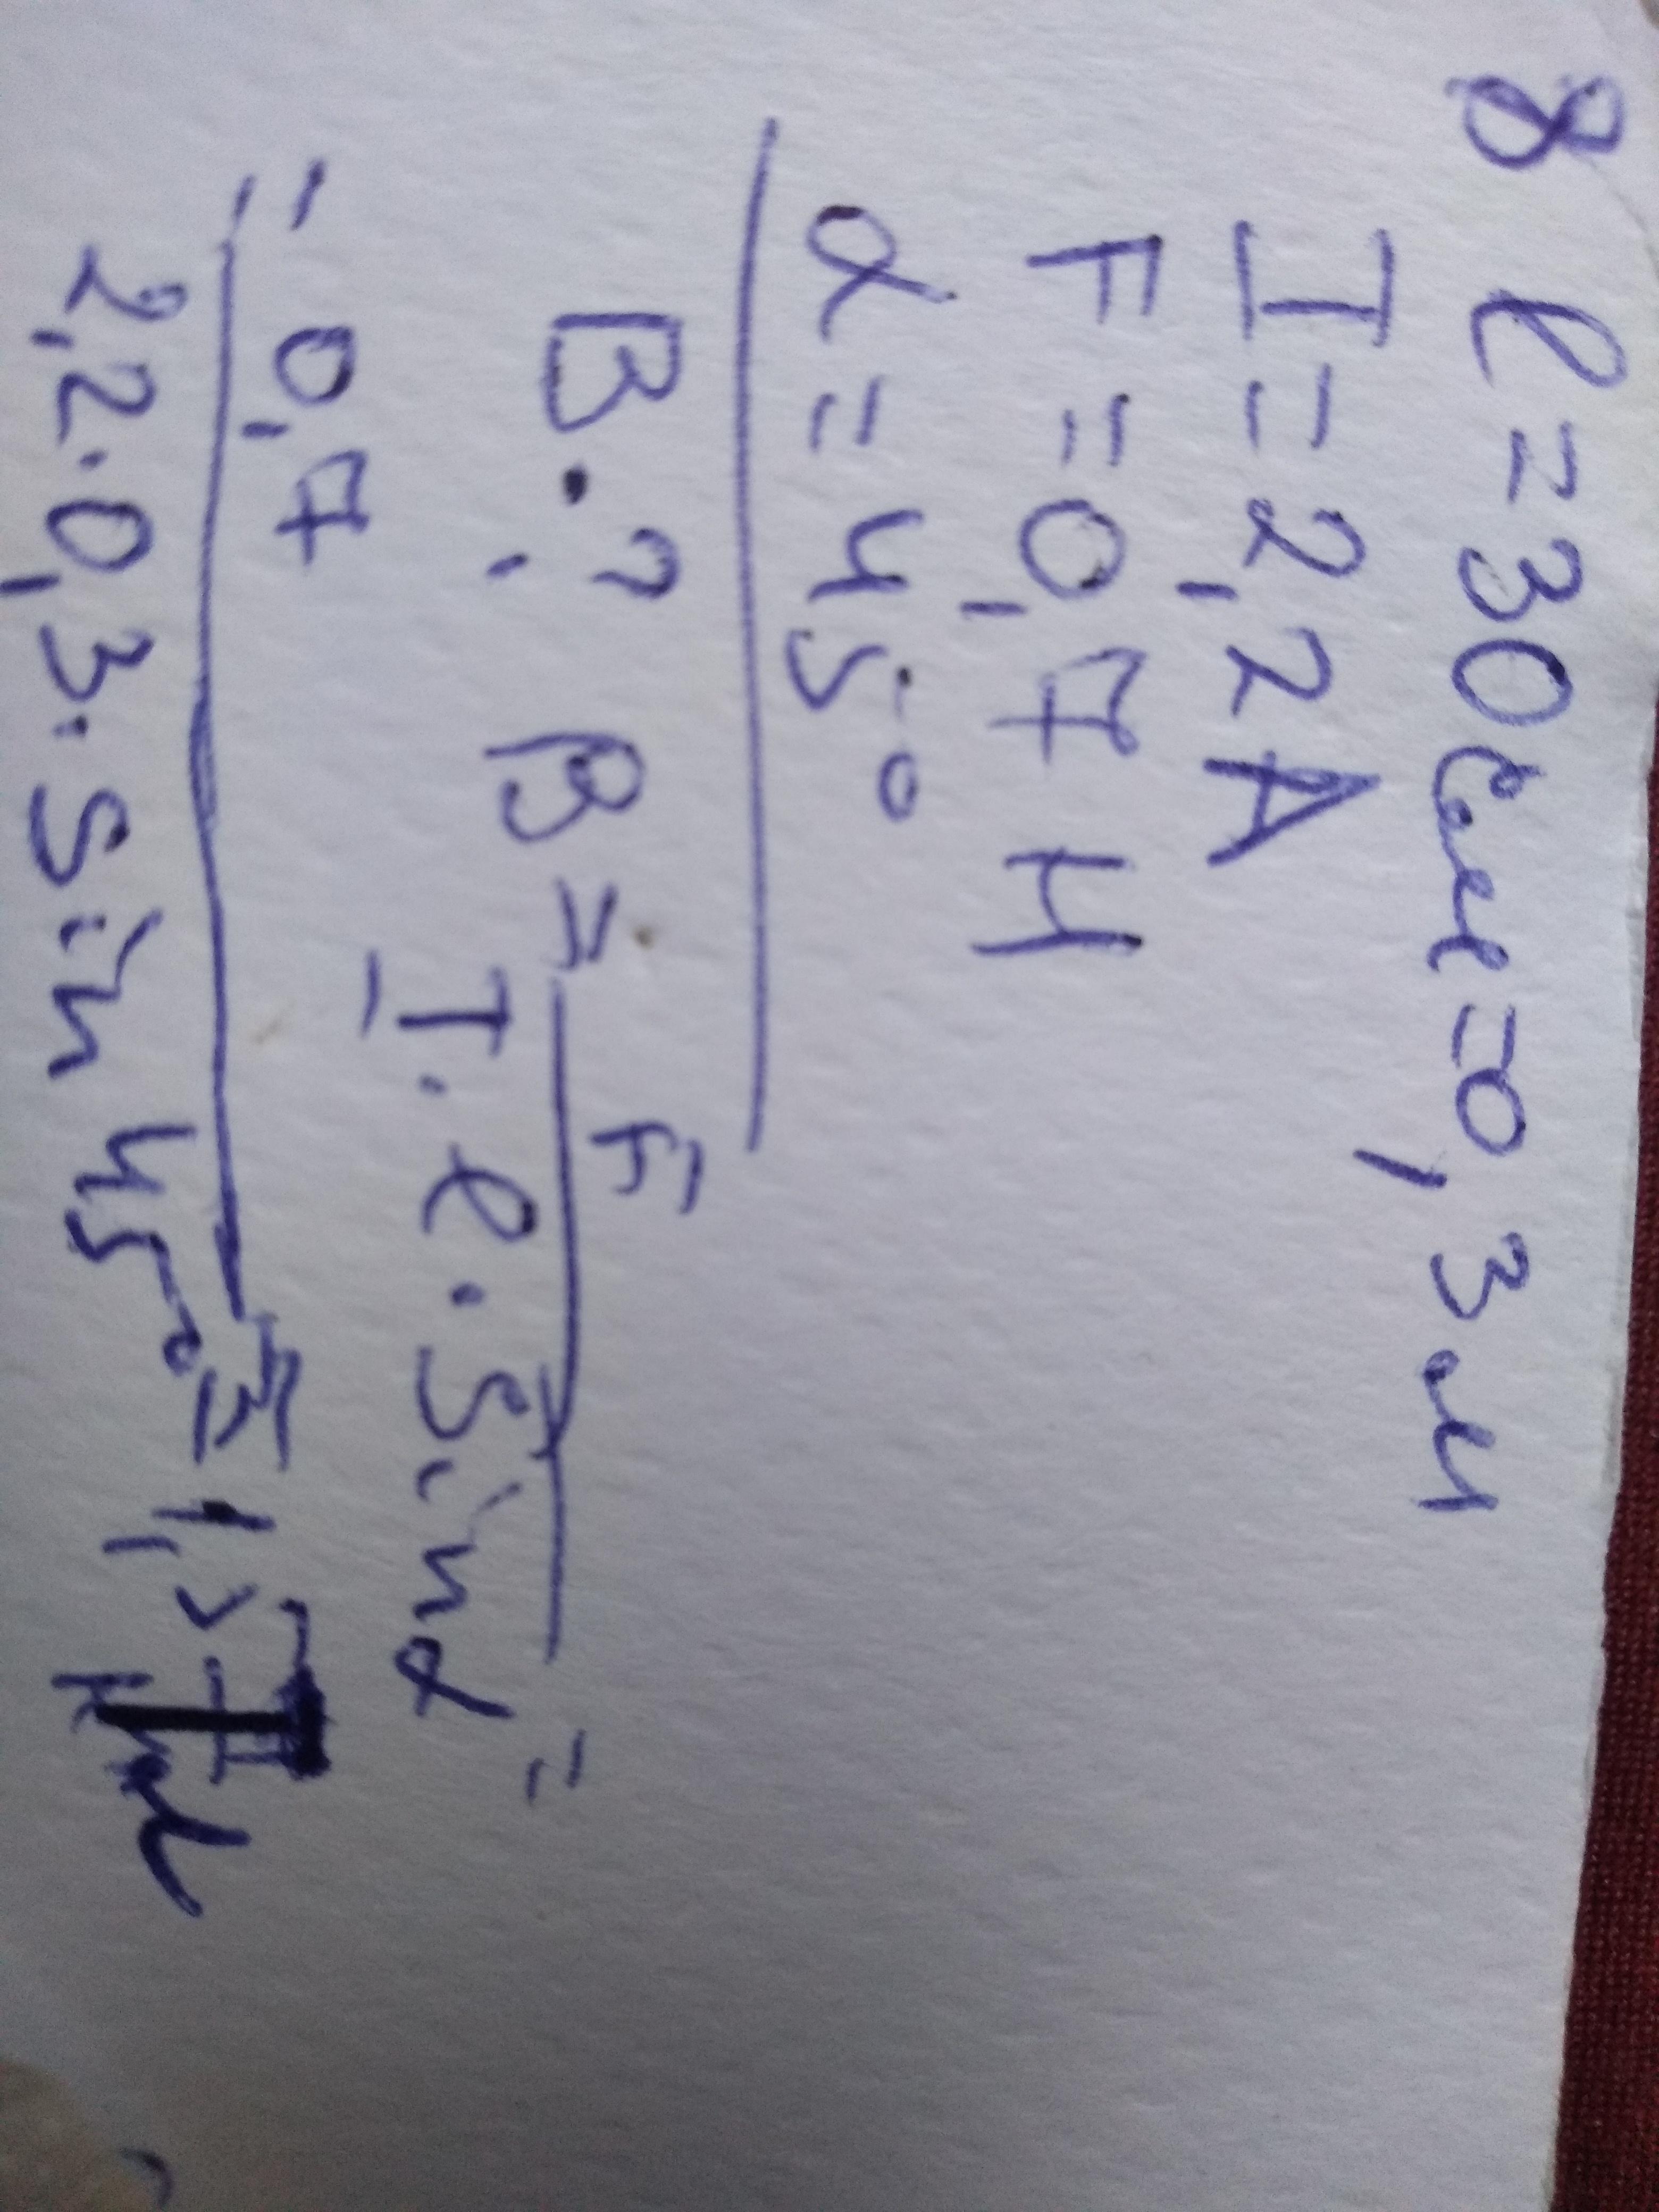 8 l=30см=0,3м
I=2,2A
F=0,7 Н
α=45°
B.?. B= F
I.l.sinα =
= 0,7
2,2.0,3.sin45° = 1,5